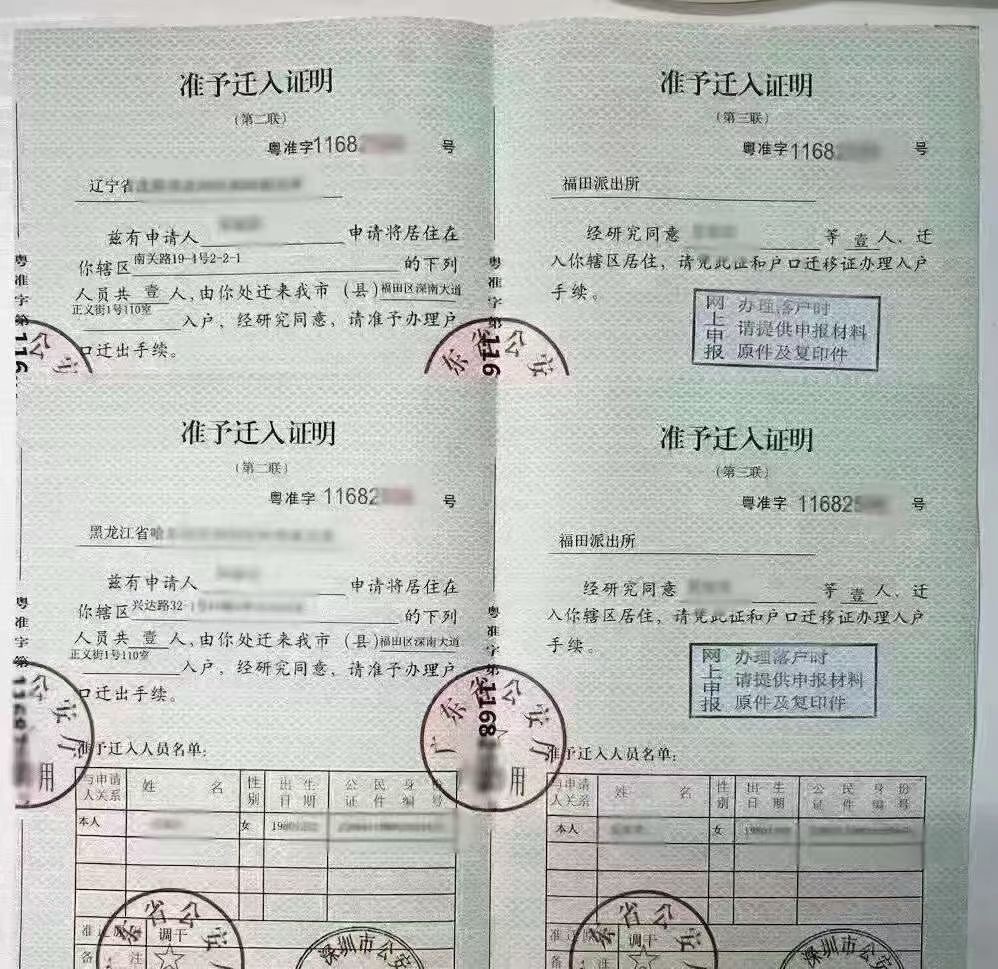 准予迁入证明
（第二联）
粤准字11682 号
辽宁省
兹有申请人 申请将居住在
你辖区南关路19-4号2-2-1 的下列
人员共 壹 人，由你处迁来我市（县）福田区深南大道
正义街1号110室 入户，经研究同意，请准予办理户
口迁出手续。
准予迁入证明
（第三联）
粤准字11682 号
福田派出所
经研究同意 等 壹 人、迁
入你辖区居住，请凭此证和户口迁移证办理入户
手续。
网上申报
办理落户时
请提供申报材料
原件及复印件
粤准字第116
东省公安
粤准字第116
公安
准予迁入证明
（第二联）
粤准字 11682 号
黑龙江省哈
兹有申请人 申请将居住在
你辖区兴达路32-1 的下列
人员共 壹 人，由你处迁来我市（县）福田区深南大道
正义街1号110室 入户，经研究同意，请准予办理户
口迁出手续。
准予迁入人员名单：
与申请人关系 姓名 性别 出生日期 公民身份证件编号
本人 女 1980
准迁 调干
备注
东省公安
深圳市公安
准予迁入证明
（第三联）
粤准字 11682 号
福田派出所
经研究同意 等 壹 人、迁
入你辖区居住，请凭此证和户口迁移证办理入户
手续。
网上申报
办理落户时
请提供申报材料
原件及复印件
准予迁入人员名单：
与申请人关系 姓名 性别 出生日期 公民身份证件编号
本人 女 1980
准迁 调干
备注
东省公安
深圳市公安
粤准字第1168
广东省公安厅
用
粤准字第1168
公安厅
用